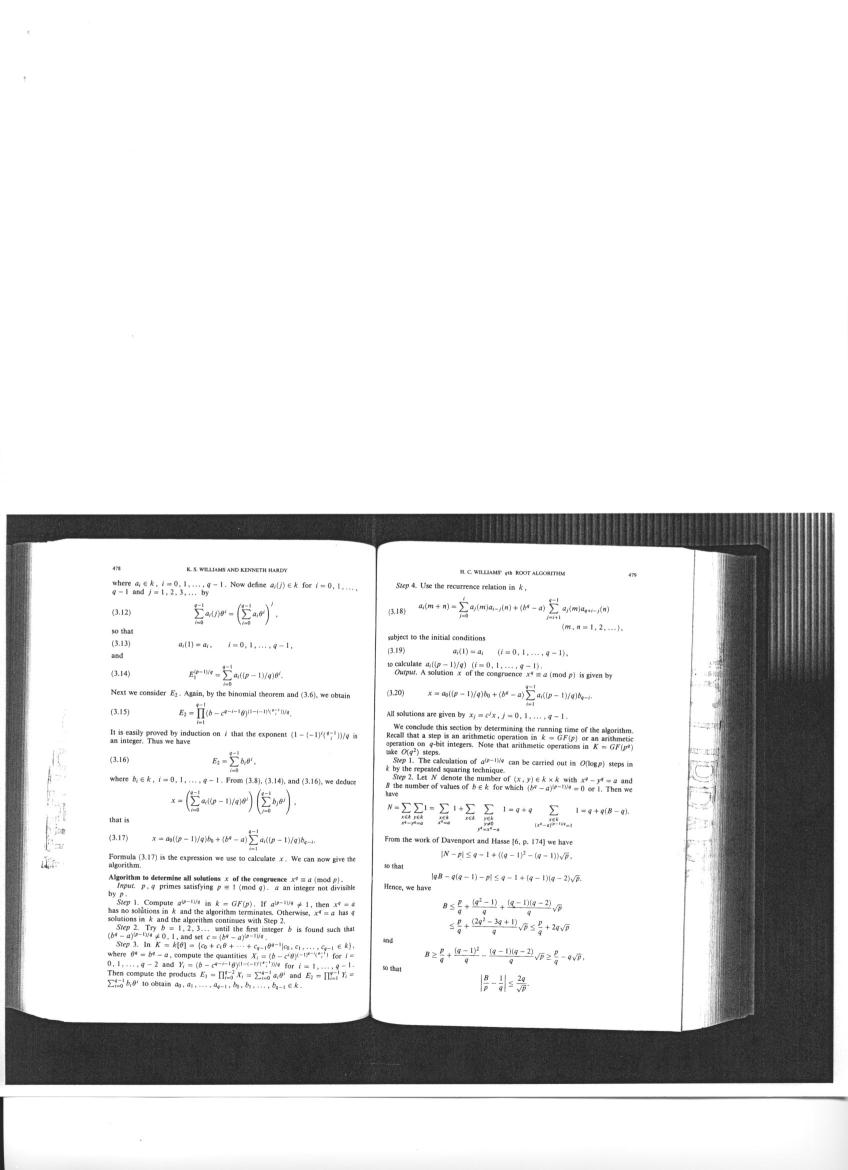 478
K. S. WILLIAMS AND KENNETH HARDY
where a_i ∈ k, i = 0, 1, ..., q − 1. Now define a_i(j) ∈ k for i = 0, 1, ...,
q − 1 and j = 1, 2, 3, ... by
(3.12) \sum_{i=0}^{q-1} a_i(j)θ^i = ( \sum_{i=0}^{q-1} a_iθ^i )^j,
so that
(3.13) a_i(1) = a_i, i = 0, 1, ..., q − 1,
and
(3.14) E_1^{(p-1)/q} = \sum_{i=0}^{q-1} a_i((p − 1)/q)θ^i.
Next we consider E_2. Again, by the binomial theorem and (3.6), we obtain
(3.15) E_2 = \prod_{i=1}^{q-1} (b − c^{q-i-1}θ)^{(1-(-1)^i\binom{q-1}{i})/q}.
It is easily proved by induction on i that the exponent (1 − (−1)^i\binom{q-1}{i})/q is
an integer. Thus we have
(3.16) E_2 = \sum_{i=0}^{q-1} b_iθ^i,
where b_i ∈ k, i = 0, 1, ..., q − 1. From (3.8), (3.14), and (3.16), we deduce
x = ( \sum_{i=0}^{q-1} a_i((p − 1)/q)θ^i ) ( \sum_{j=0}^{q-1} b_jθ^j ),
that is
(3.17) x = a_0((p − 1)/q)b_0 + (b^q − a) \sum_{i=1}^{q-1} a_i((p − 1)/q)b_{q-i}.
Formula (3.17) is the expression we use to calculate x. We can now give the
algorithm.
Algorithm to determine all solutions x of the congruence x^q ≡ a (mod p).
Input. p, q primes satisfying p ≡ 1 (mod q). a an integer not divisible
by p.
Step 1. Compute a^{(p-1)/q} in k = GF(p). If a^{(p-1)/q} ≠ 1, then x^q = a
has no solutions in k and the algorithm terminates. Otherwise, x^q = a has q
solutions in k and the algorithm continues with Step 2.
Step 2. Try b = 1, 2, 3... until the first integer b is found such that
(b^q − a)^{(p-1)/q} ≠ 0, 1, and set c = (b^q − a)^{(p-1)/q}.
Step 3. In K = k[θ] = {c_0 + c_1θ + ··· + c_{q-1}θ^{q-1} | c_0, c_1, ..., c_{q-1} ∈ k},
where θ^q = b^q − a, compute the quantities X_i = (b − c^iθ) for i =
0, 1, ..., q − 2 and Y_i = (b − c^{q-i-1}θ)^{(1-(-1)^i\binom{q-1}{i})/q} for i = 1, ..., q − 1.
Then compute the products E_1 = \prod_{i=0}^{q-2} X_i = \sum_{i=0}^{q-1} a_iθ^i and E_2 = \prod_{i=1}^{q-1} Y_i =
\sum_{i=0}^{q-1} b_iθ^i to obtain a_0, a_1, ..., a_{q-1}, b_0, b_1, ..., b_{q-1} ∈ k.
H. C. WILLIAMS' qth ROOT ALGORITHM
479
Step 4. Use the recurrence relation in k,
(3.18) a_i(m + n) = \sum_{j=0}^{i} a_j(m)a_{i-j}(n) + (b^q − a) \sum_{j=i+1}^{q-1} a_j(m)a_{q+i-j}(n)
(m, n = 1, 2, ...),
subject to the initial conditions
(3.19) a_i(1) = a_i (i = 0, 1, ..., q − 1),
to calculate a_i((p − 1)/q) (i = 0, 1, ..., q − 1).
Output. A solution x of the congruence x^q ≡ a (mod p) is given by
(3.20) x = a_0((p − 1)/q)b_0 + (b^q − a) \sum_{i=1}^{q-1} a_i((p − 1)/q)b_{q-i}.
All solutions are given by x_j = c^jx, j = 0, 1, ..., q − 1.
We conclude this section by determining the running time of the algorithm.
Recall that a step is an arithmetic operation in k = GF(p) or an arithmetic
operation on q-bit integers. Note that arithmetic operations in K = GF(p^q)
take O(q^2) steps.
Step 1. The calculation of a^{(p-1)/q} can be carried out in O(log p) steps in
k by the repeated squaring technique.
Step 2. Let N denote the number of (x, y) ∈ k × k with x^q − y^q = a and
B the number of values of b ∈ k for which (b^q − a)^{(p-1)/q} = 0 or 1. Then we
have
N = \sum_{x∈k} \sum_{y∈k, x^q-y^q=a} 1 = \sum_{x∈k, x^q=a} 1 + \sum_{x∈k} \sum_{y∈k, y≠0, y^q=x^q-a} 1 = q + q \sum_{x∈k, (x^q-a)^{(p-1)/q}=1} 1 = q + q(B − q).
From the work of Davenport and Hasse [6, p. 174] we have
|N − p| ≤ q − 1 + ((q − 1)^2 − (q − 1))√p,
so that
|qB − q(q − 1) − p| ≤ q − 1 + (q − 1)(q − 2)√p.
Hence, we have
B ≤ p/q + (q^2 − 1)/q + ((q − 1)(q − 2)/q)√p
≤ p/q + ((2q^2 − 3q + 1)/q)√p ≤ p/q + 2q√p
and
B ≥ p/q + (q − 1)^2/q − ((q − 1)(q − 2)/q)√p ≥ p/q − q√p,
so that
|B/p − 1/q| ≤ 2q/√p.